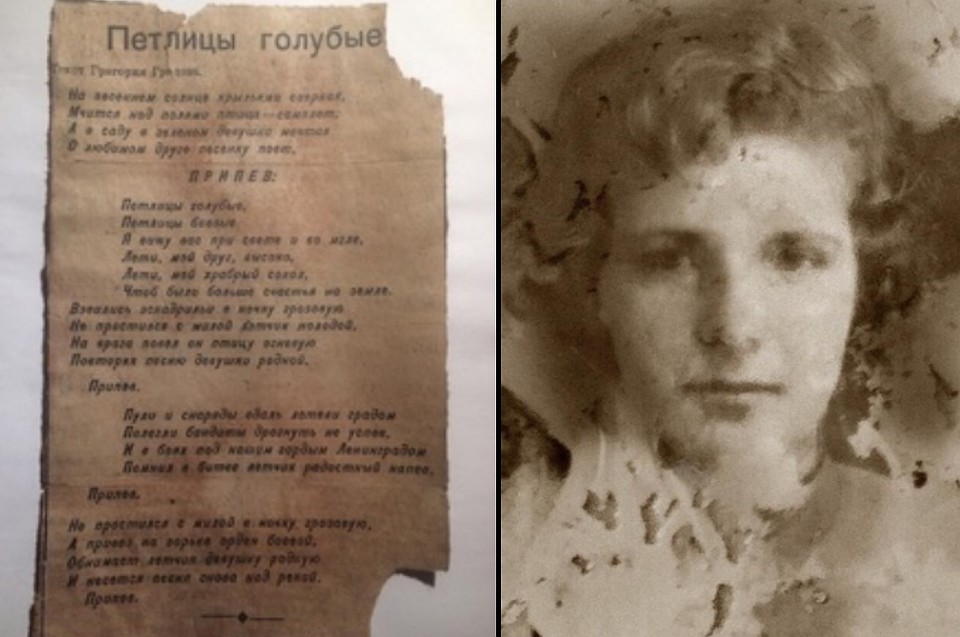 Петлицы голубые
Текст Григория Гридова.
На весеннем солнце крыльями сверкая,
Мчится над полями птица—самолет;
А в саду в зеленом девушка мечтая
О любимом друге песенку поет.
ПРИПЕВ:
Петлицы голубые,
Петлицы боевые
Я вижу вас при свете и во мгле,
Лети, мой друг, высоко,
Лети, мой храбрый сокол,
Чтоб было больше счастья на земле.
Взвились эскадрильи в ночку грозовую
Не простился с милой летчик молодой,
На врага повел он птицу огневую
Повторяя песню девушки родной.
Припев.
Пули и снаряды вдаль летели градом
Полегли бандиты дрогнуть не успев,
И в боях под нашим гордым Ленинградом
Помнил в битве летчик радостный напев.
Припев.
Не простился с милой в ночку грозовую,
А привез на зорьке орден боевой,
Обнимает летчик девушку родную
И несется песня снова над рекой.
Припев.